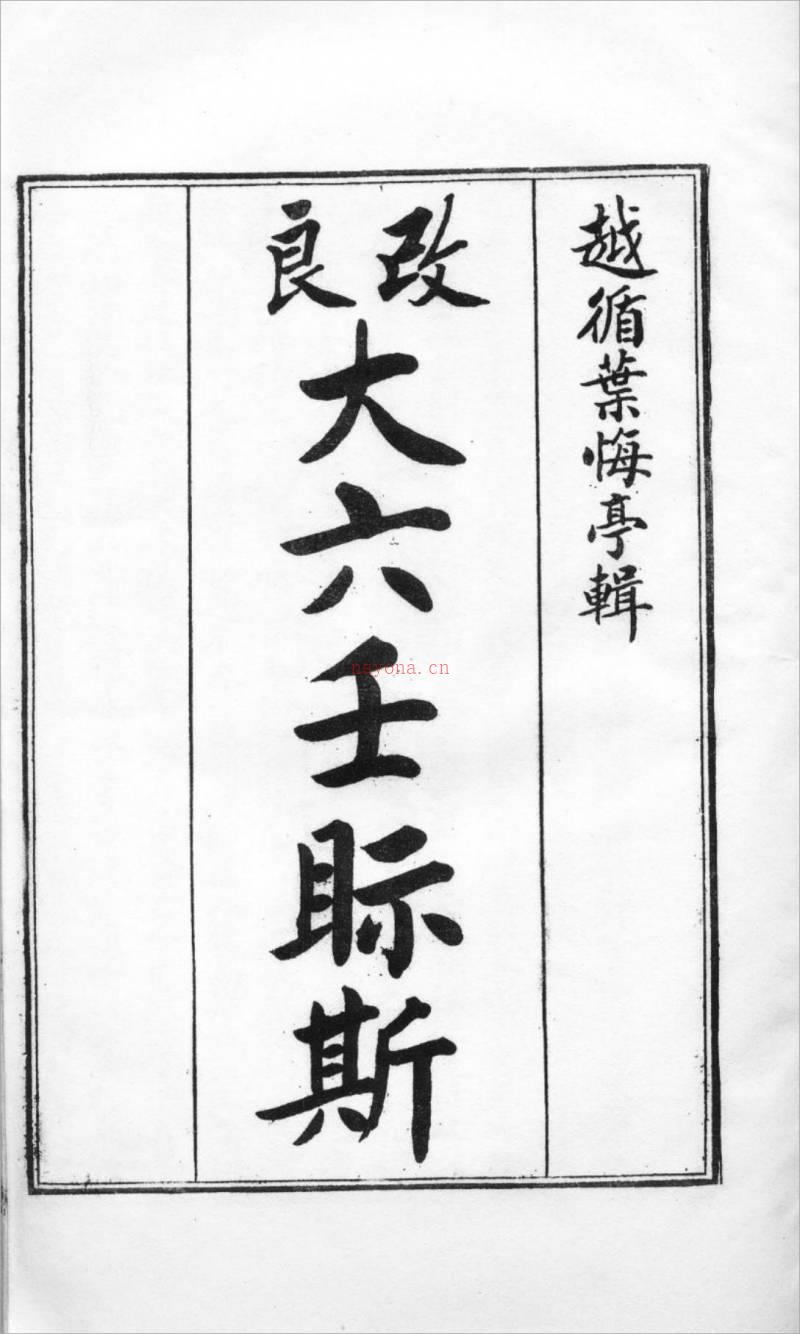 越循葉悔亭輯
改良
大六壬眎斯
nayona.cn